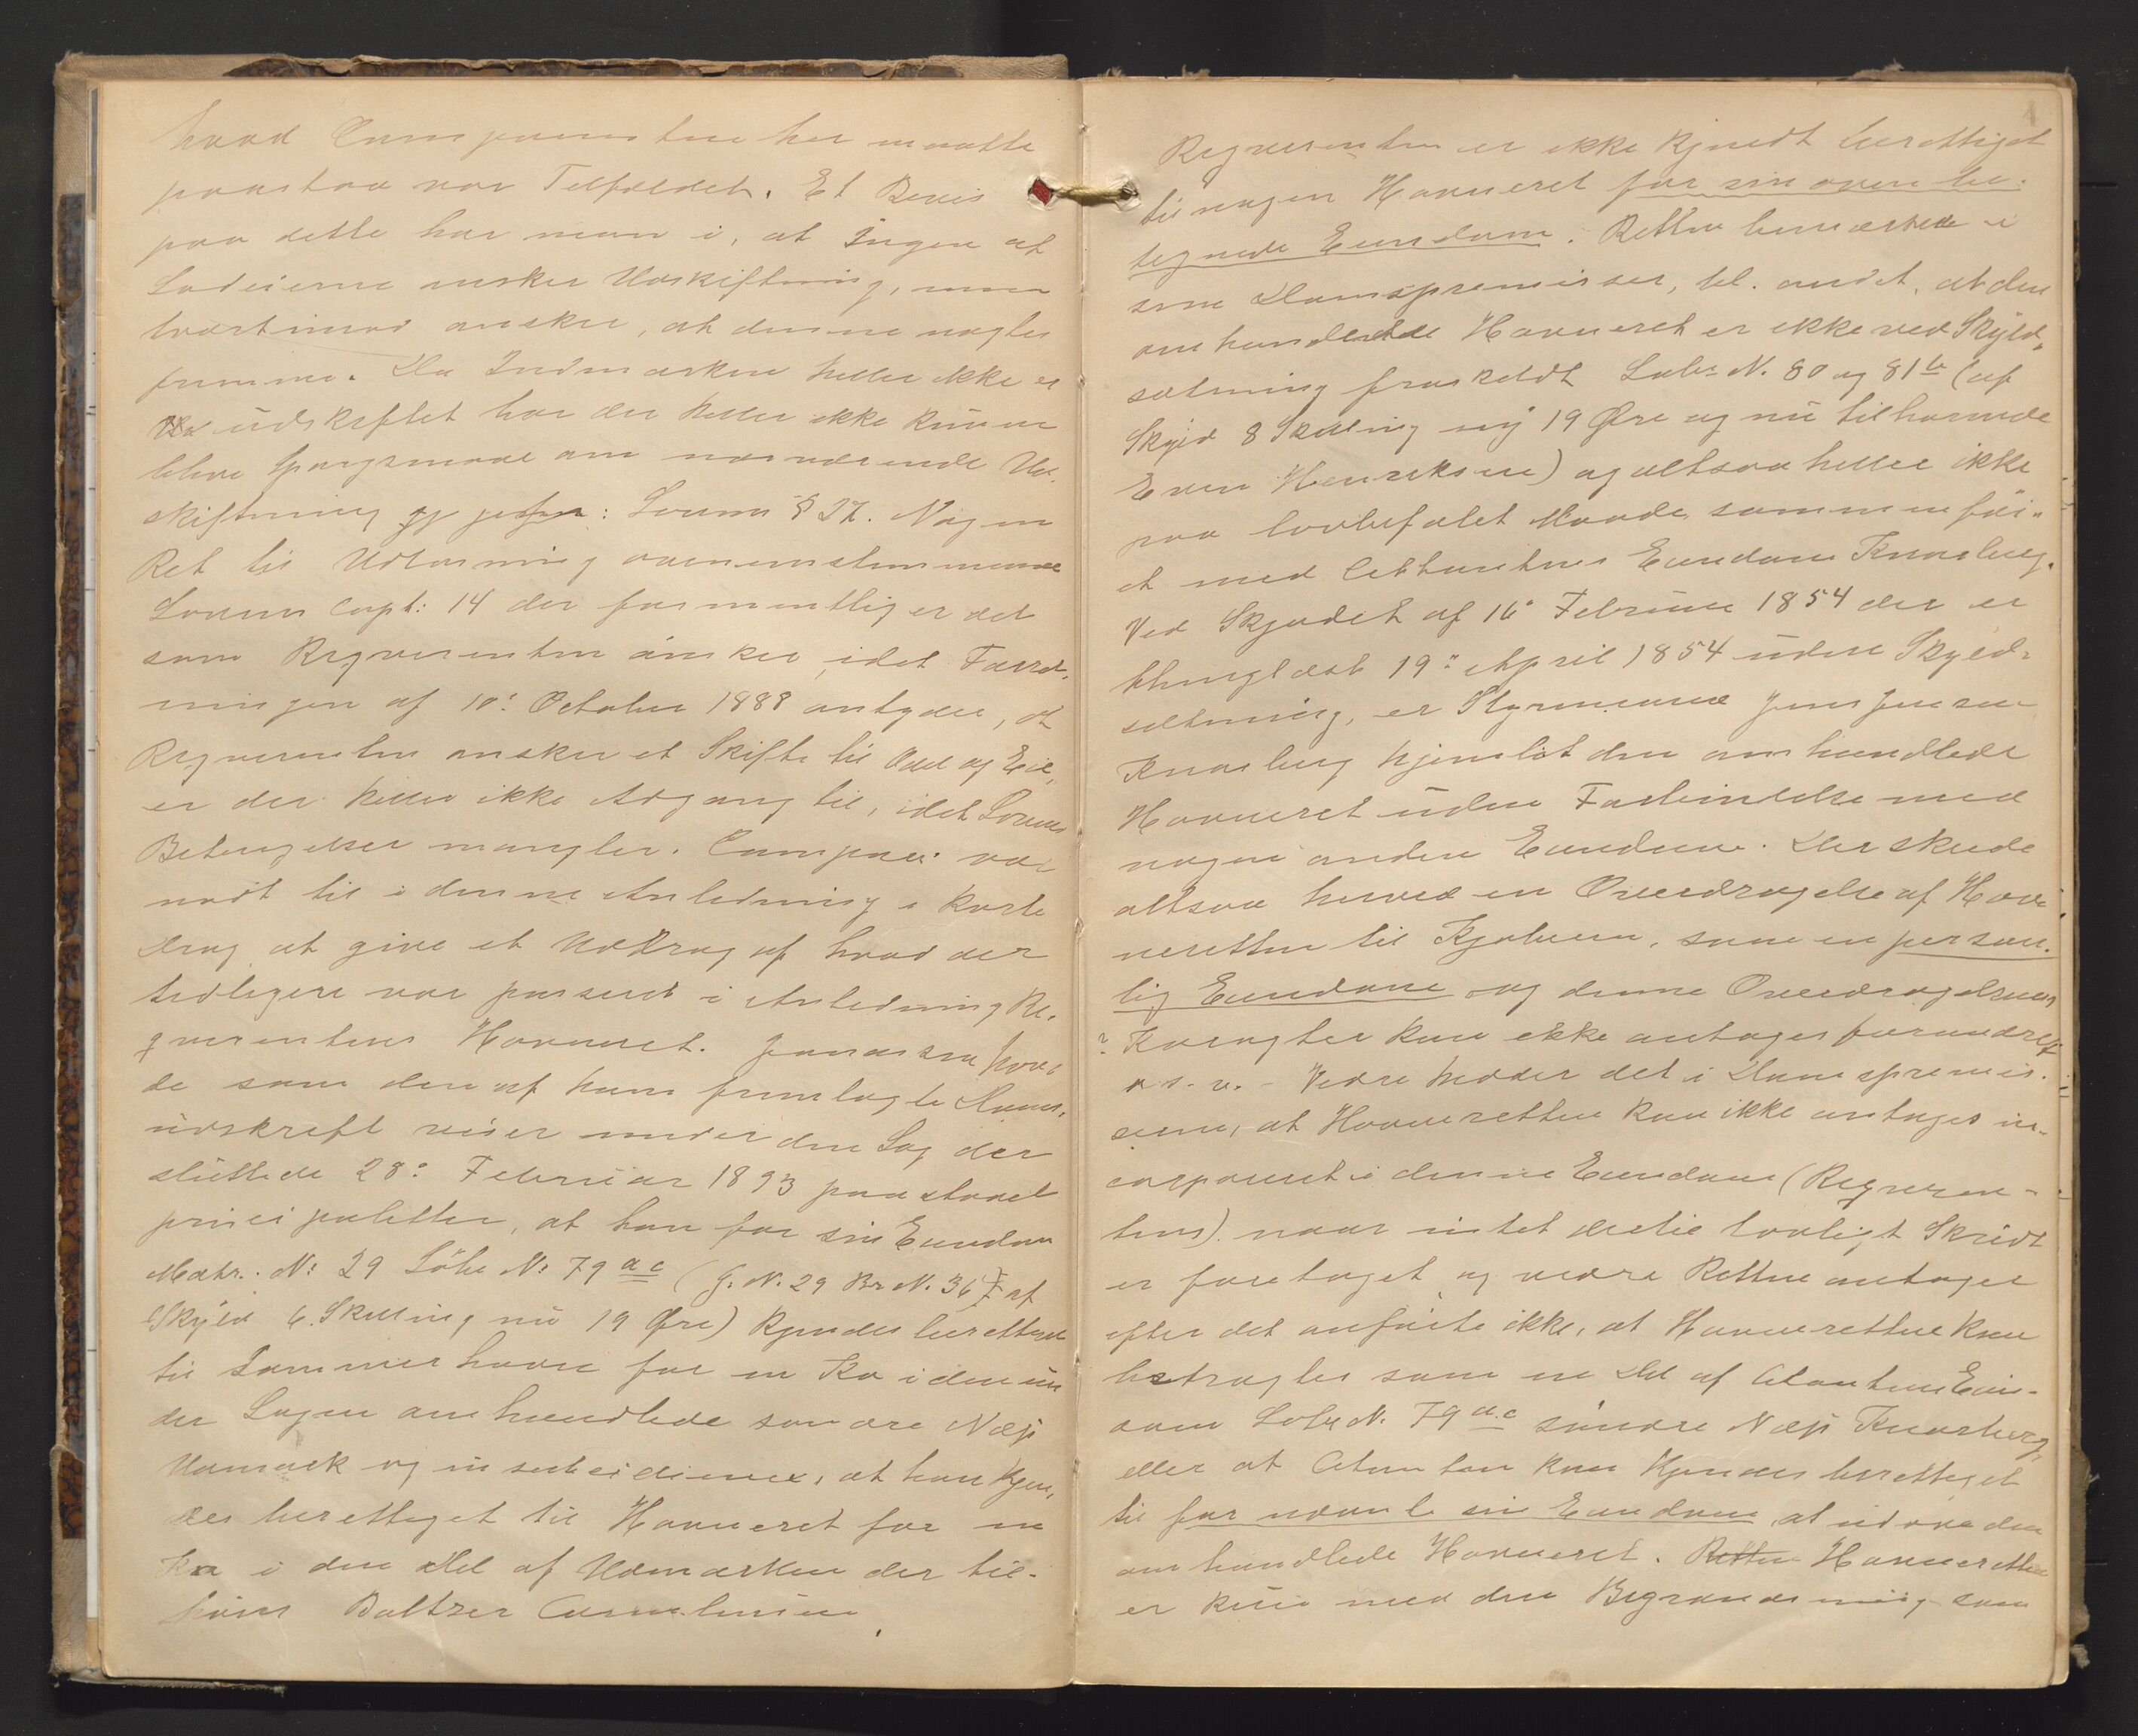 hvad Comparenterne her maatte
paastaa var Tilfældet. Et Bevis
paa dette har man i, at Ingen af
Lodeierne ønsker Udskiftning, men
tvertimod ønsker, at denne nægtes
fremme. Da Indmarken heller ikke er
udskiftet har der heller ikke kunne
blive Spørgsmaal om nærværende Ud-
skiftning jfr: Lovens § 27. Nogen
Ret til Udløsning overensstemmende
Lovens Capt: 14 der formentlig er det
som Reqvirenten ønsker, idet Forret-
ningen af 10: October 1888 antyder, at
Reqvirenten ønsker et Skifte til Odel og Eie,
er der heller ikke Adgang til, idet Lovens
Betingelser mangler. Comparenten var
nødt til i denne Anledning i korte
Drag at give et Uddrag af hvad der
tidligere var passeret i Anledning Re-
qvirentens Havneret. Jonassen havde
de som den af ham fremlagte Doms-
udskrift viser under den Sag der
sluttede 28: Februar 1893 paastaaet
principaliter, at han for sin Eiendom
Matr.: N: 29 Løbe N: 79 ac (G. N. 29 Br N. 36 af
Skyld 6. Skilling nu 19 Øre) kjendes berettiget
til Sommerhavn for en Ko i den un
der Sagen omhandlede søndre Næs
Udmark og in subsidiaria, at han kjen-
des berettiget til Havneret for en
Ko i den Del af Udmarken der til-
hører Baltzer Corneliusen.
4
Reqvirenten er ikke kjendt berettiget
til nogen Havneret for sin oven be-
tegnede Eiendom. Retten bemærkede i
sine Domspremisser, bl. andet, at den
omhandlede Havneret er ikke ved Skyld-
sætning fraskildt Løbe N. 80 og 81 b (af
Skyld 8 Skilling ny 19 Øre og nu tilhørende
Even Henriksen) og altsaa heller ikke
paa lovbefalet Maade sammenføi-
et med Citantens Eiendom Knarberg.
Ved Skjødet af 16 Februar 1854 der er
thinglæst 19: April 1854 uden Skyld-
sætning, er Styrmand Jens Jensen
Knarberg hjemlet den omhandlede
Havneret uden Forbindelse med
nogen anden Eiendom. Der skede
altsaa herved en Overdragelse af Hav-
neretten til Kjøberen, som en person-
lig Eiendom og denne Overdragelsens
? Karagter kan ikke antages forandret
o s. v. – Vidre heder det i Domspremis-
serne, at Havneretten kan ikke antages in-
corporeret i denne Eiendom (Reqviren-
tens) naar intet dertil lovligt Skridt
er foretaget og vidre Retten antager
efter det anførte ikke, at Havneretten kan
betragtes som en Del af Citantens Eien-
dom Løbe N. 79 a.c søndre Næs Knarberg,
eller at Citanten kan kjendes berettiget
til for nævnte sin Eiendom, at udøve den
omhandlede Havneret. Retten Havneretten
er kun med den Begrændsning som